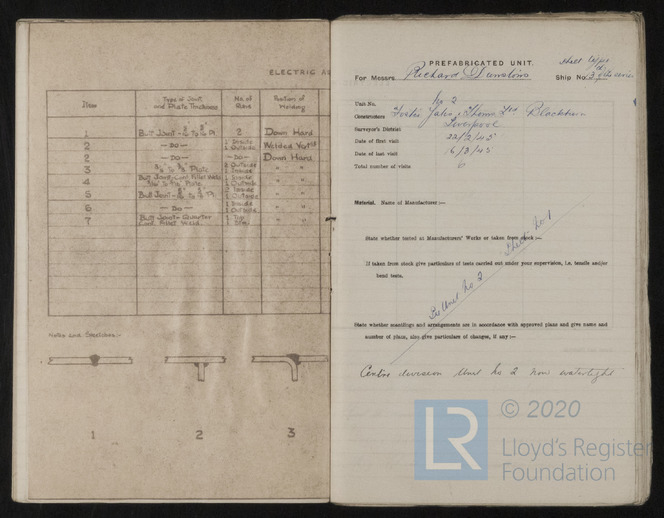 ELECTRIC
Item
Type of Joint and Plate Thickness
No of Runs
Position of Welding
1 Butt Joint - 2 Down Hand
2 - DO - 1 Inside 1 Outside Welded Vert
2 - DO - - DO - Down Hand
3 Plate Outside 1 Inside " "
4 Butt Joint - Cont Fillet Weld Plate 1 Inside 1 Outside " "
5 Butt Joint - Inside Outside " "
6 - DO - 1 Inside 1 Outside " "
7 Butt Joint - Quarter Cont. Fillet Weld. 1 Top " "
Notes and Sketches:-
1 2 3
PREFABRICATED UNIT.
For Messrs. Richard Dunstons Ship No.
Unit No. No 2
Constructors Foster Yates & Thom Ltd Blackburn
Surveyor's District Liverpool
Date of first visit 22/2/45
Date of last visit 6/3/45
Total number of visits 6
Material. Name of Manufacturer :—
State whether tested at Manufacturers' Works or taken from stock :—
Sheet No 1
If taken from stock give particulars of tests carried out under your supervision, i.e. tensile and/or
bend tests.
Unit No 2
State whether scantlings and arrangements are in accordance with approved plans and give name and
number of plans, also give particulars of changes, if any :—
Centre division Unit No 2 non watertight
LR
© 2020
Lloyd's Register
Foundation